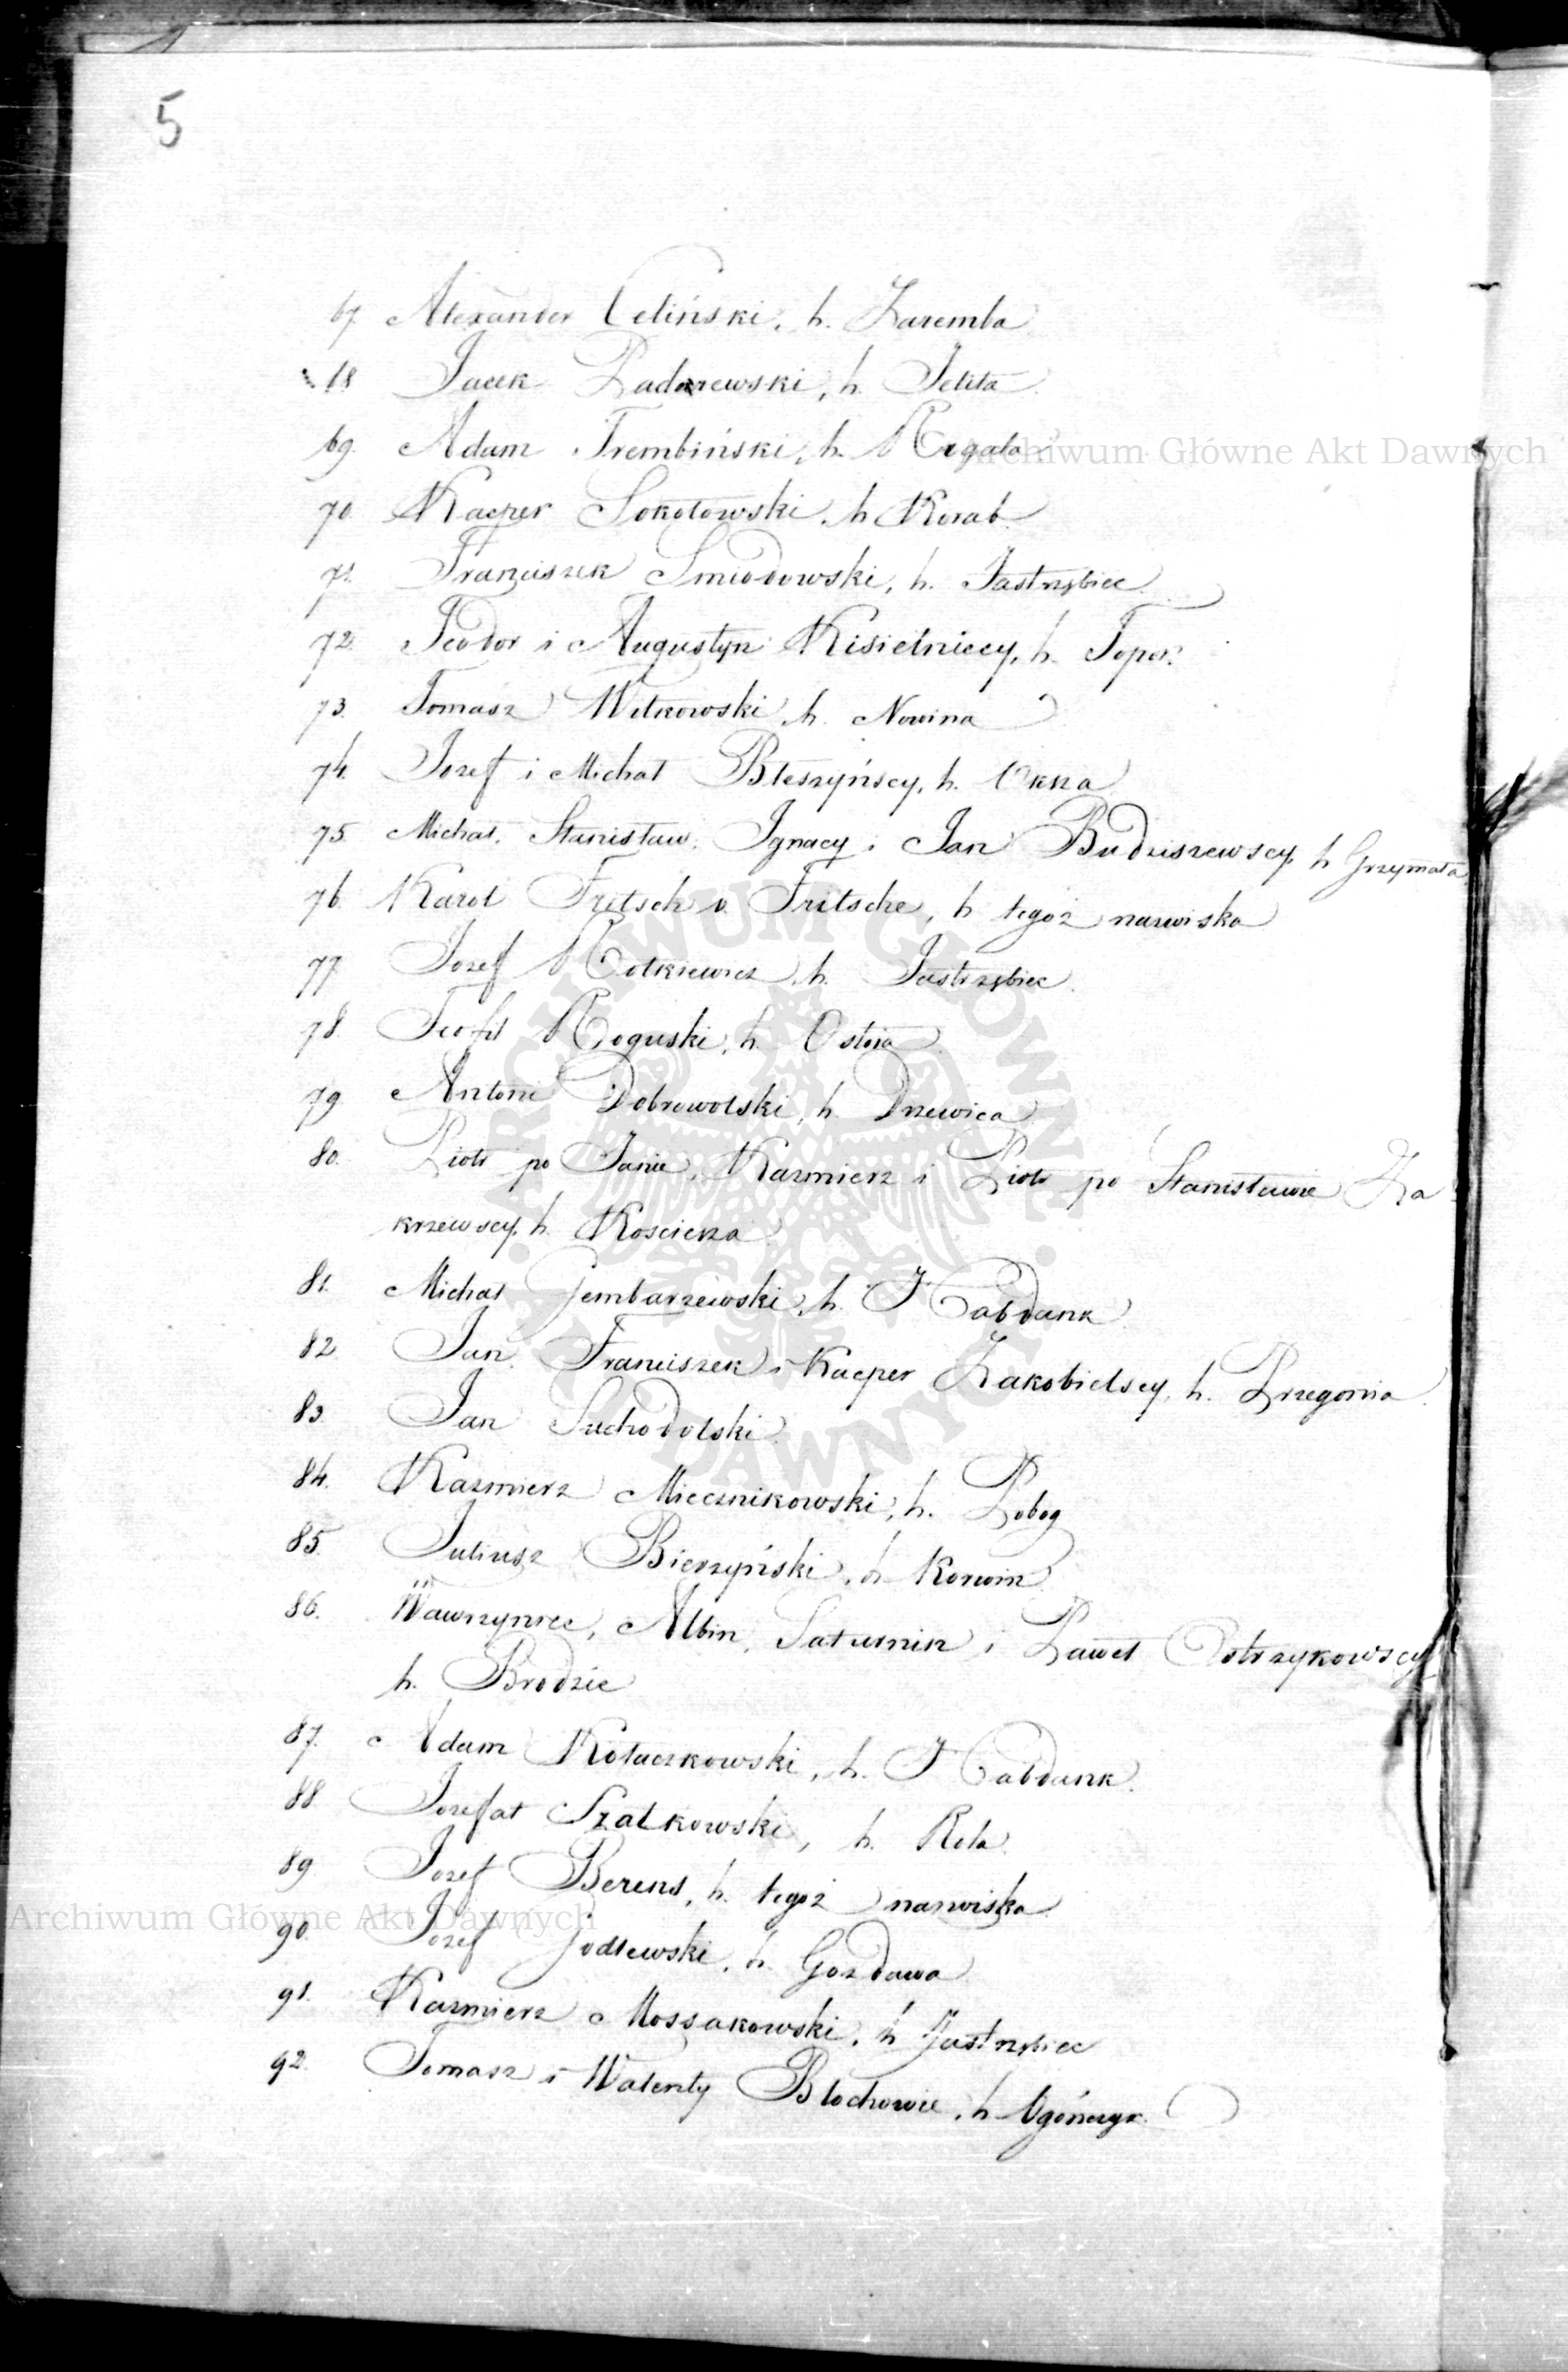 5
67. Alexander Celiński, h. Zaremba
68 Jacek Padarewski, h. Jelita.
69. Adam Trembiński, h. Rogala
Archiwum Główne Akt Dawnych
70. Kacper Sokołowski, h. Korab.
71. Franciszek Smiodowski, h. Jastrzębiec.
72. Teodor i Augustyn Kisielniccy, h. Topor.
73. Tomasz Witkowski, h. Nowina
74. Jozef i Michał Bleszyńscy, h. Oksza
75. Michał, Stanisław, Ignacy i Jan Budziszewscy, h Grzymała
76. Karol Fritsch v. Fritsche, h tegoż nazwiska
77. Jozef Rotkiewicz, h. Jastrzębiec.
78. Teofil Roguski, h. Ostoia
79. Antoni Dobrowolski, h. Drzewica
80. Piotr po Janie, Kazmierz i Piotr po Stanisławie Za
krzewscy, h. Kosciesza
81. Michał Gembarzewski, h. Habdank
82. Jan, Franciszek i Kacper Zakobielscy, h. Przegonia.
83. Jan Suchodolski.
84. Kazmierz Miecznikowski, h. Pobog
85. Juliusz Bierzyński, h. Korwin.
86. Wawrzyniec, Albin, Saturnin i Paweł Ostrzykowscy
h. Brodzic
87. Adam Kołaczkowski, h. Habdank.
88. Jozefat Szalkowski, h. Rola.
89. Jozef Berens, h. tegoż nazwiska.
Archiwum Główne Akt Dawnych
90. Jozef Godlewski, h. Gozdawa
91. Kazmierz Mossakowski, h Jastrzębiec
92. Tomasz i Walenty Blochowie, h. Ogończyk.
ARCHIWUM GŁÓWNE AKT DAWNYCH